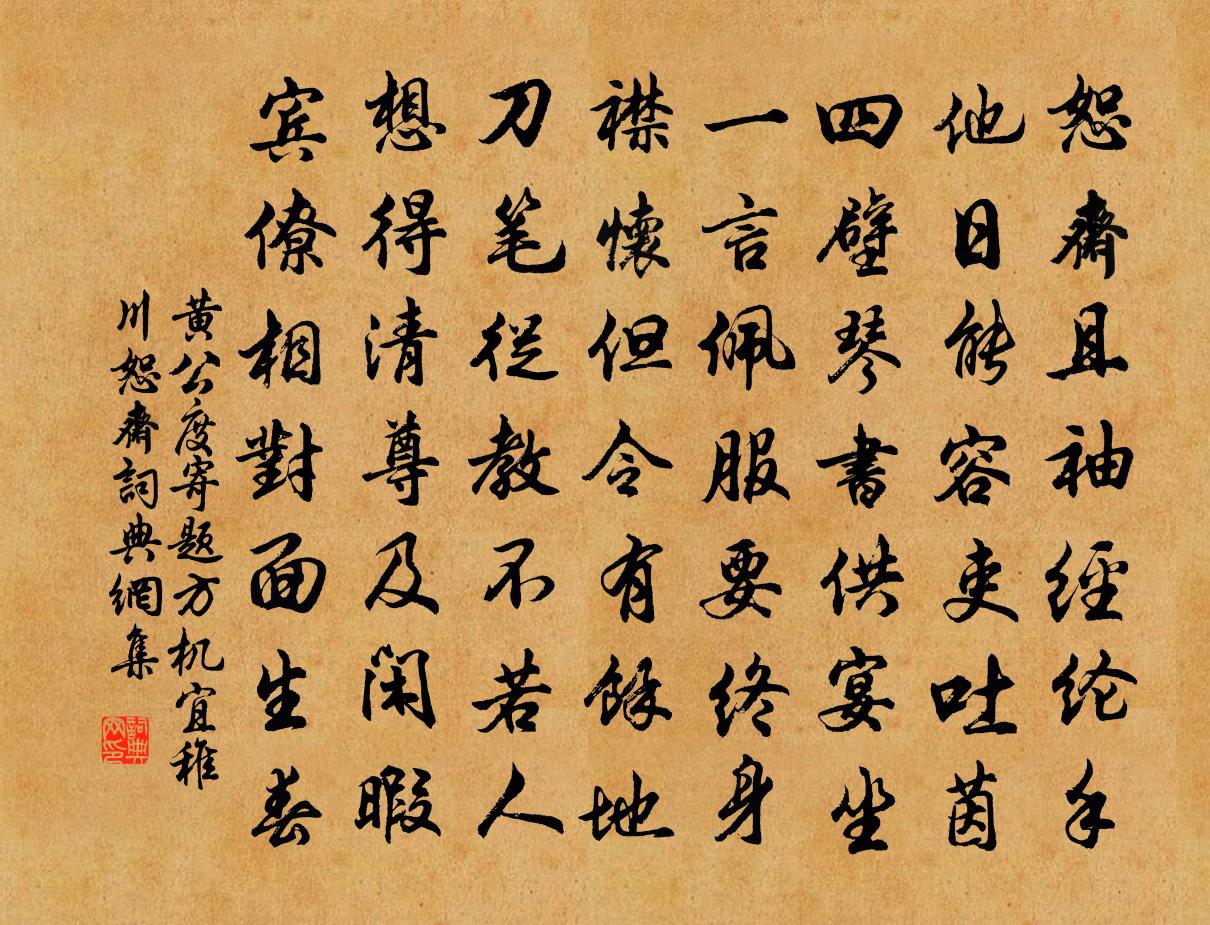 恕齋且袖经纶手
他日能容吏吐茵
四壁琴書供宴坐
一言佩服要终身
襟懷但令有餘地
刀笔從教不若人
想得清尊及閑暇
宾僚相對面生春
黄公度寄题方机宜稚
川恕齋詞典網集
詞典网印